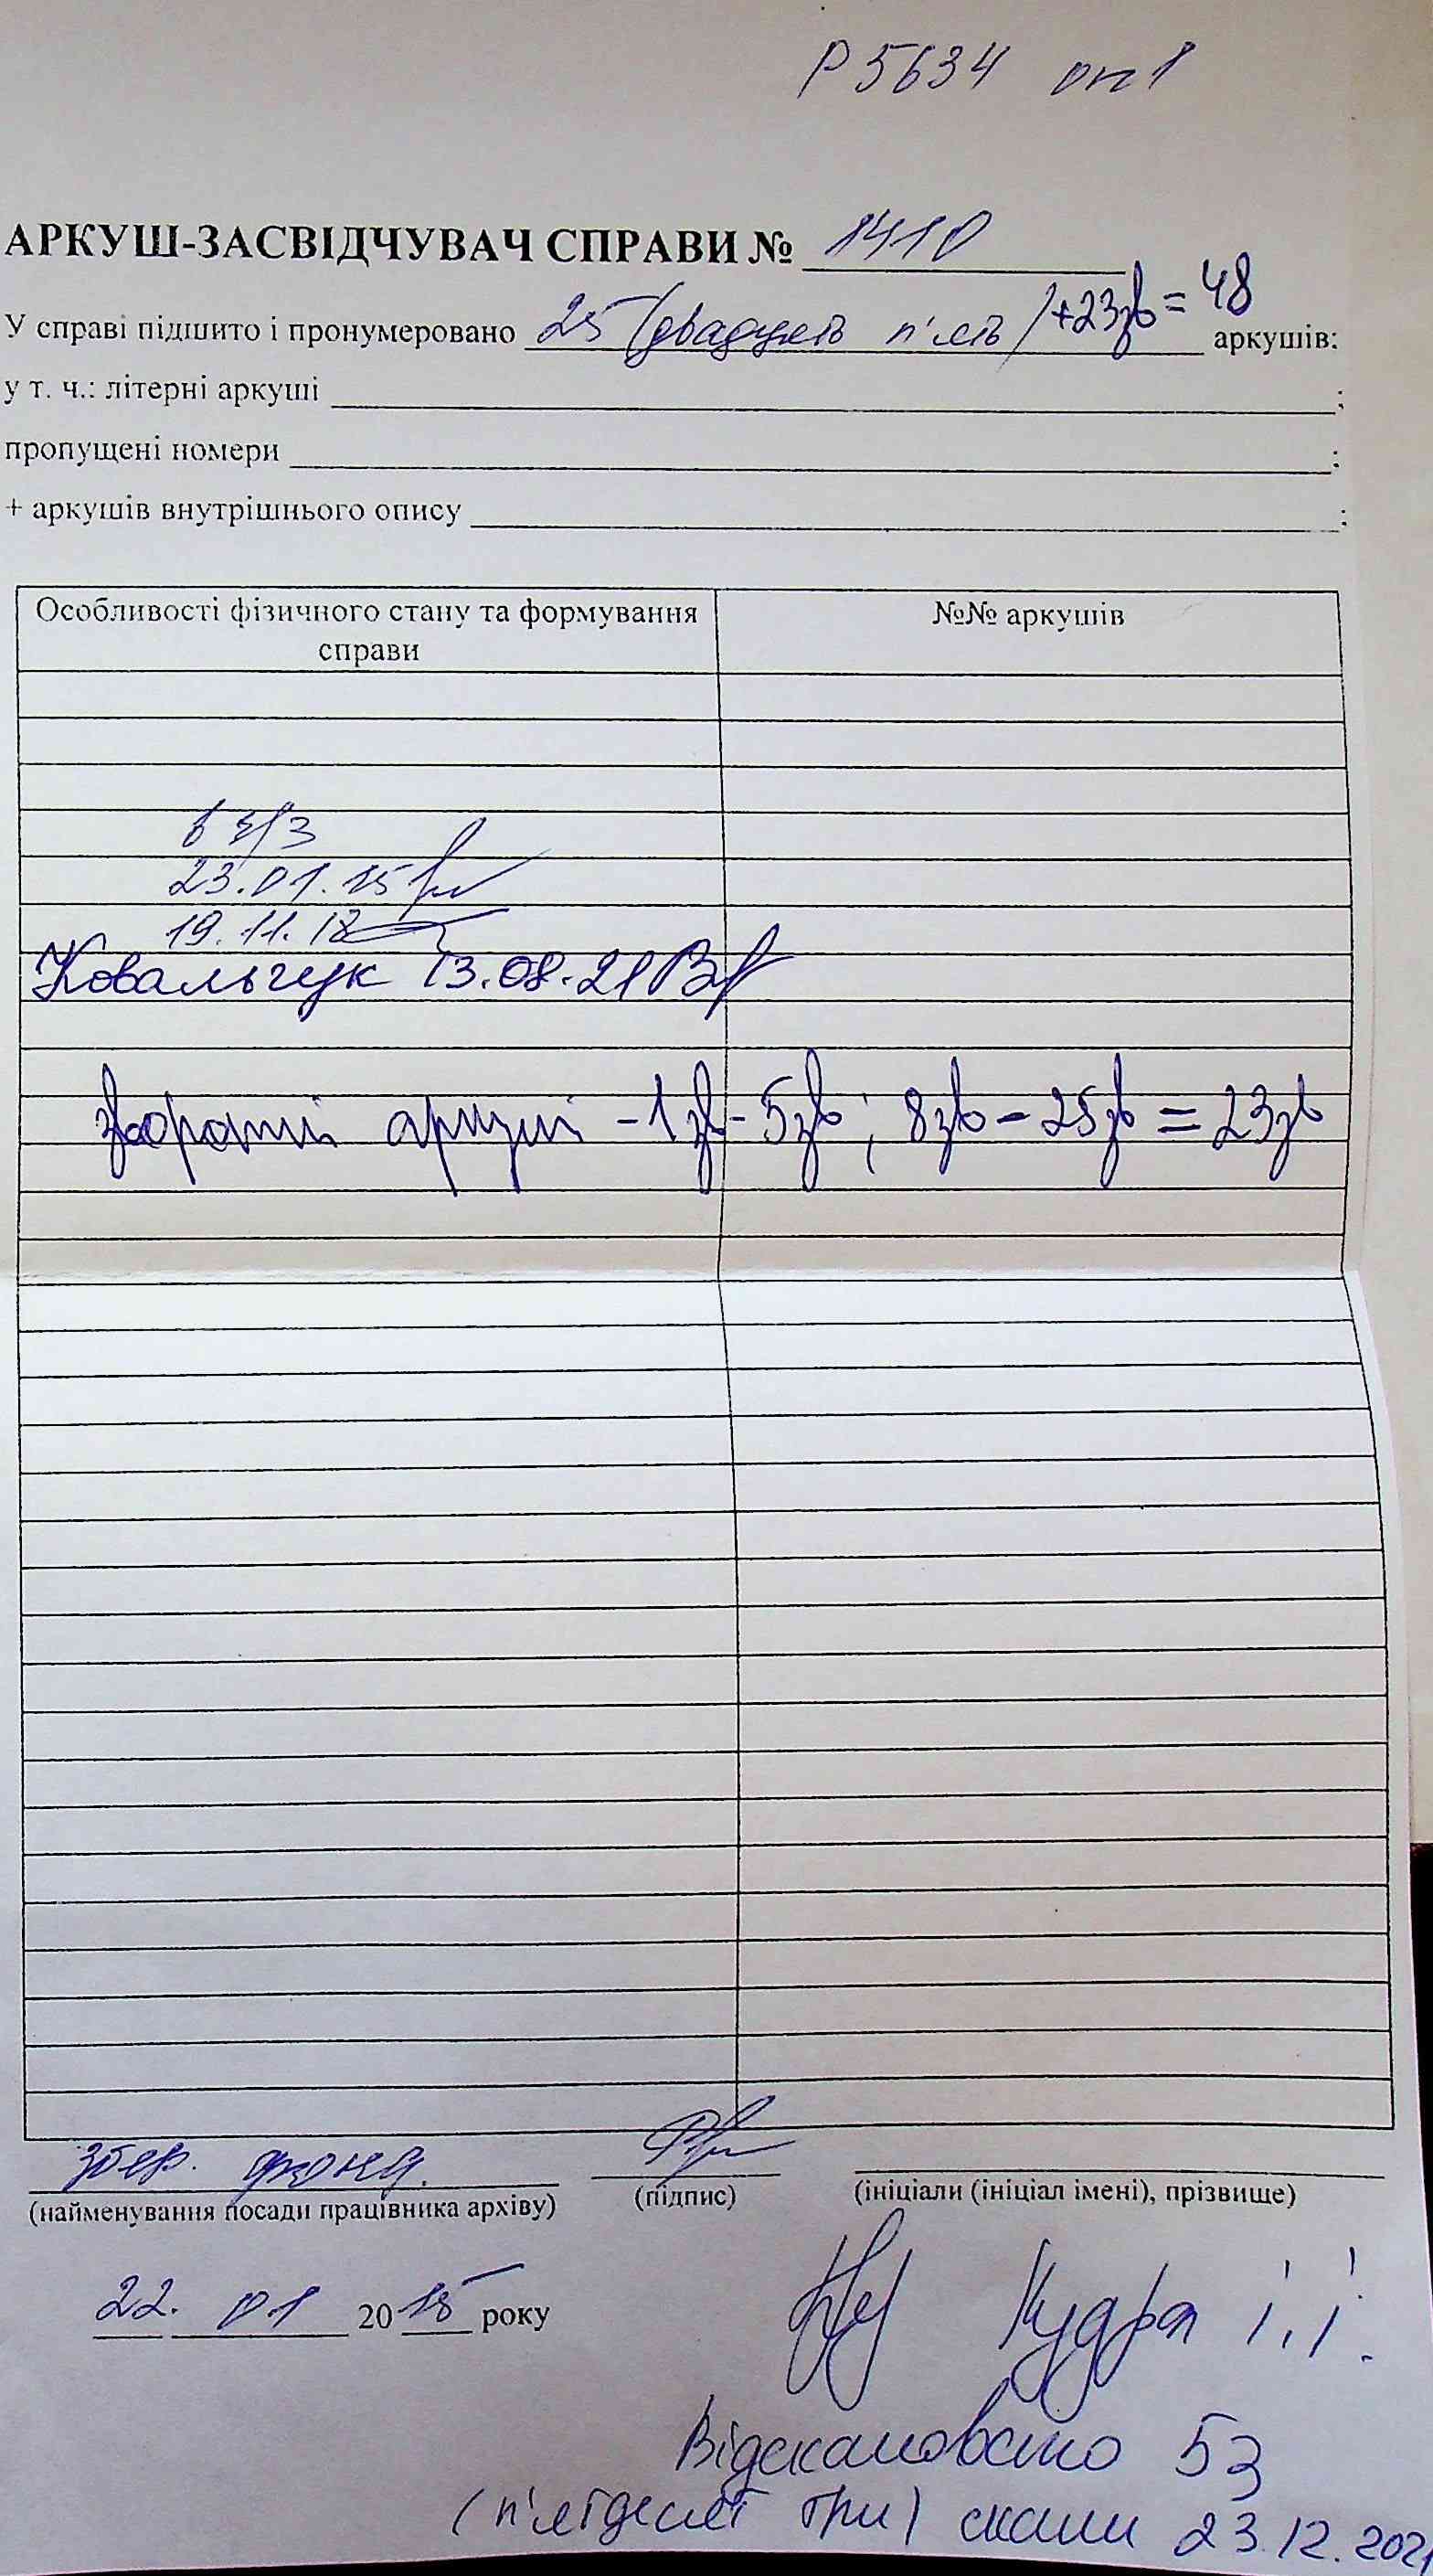 Р 5634 оп 1
АРКУШ-ЗАСВІДЧУВАЧ СПРАВИ № 1410
У справі підшито і пронумеровано 25 (двадцять п'ять) +23зв = 48 аркушів:
у т. ч.: літерні аркуші ;
пропущені номери ;
+ аркушів внутрішнього опису ;
Особливості фізичного стану та формування справи
№№ аркушів
23.01.15
19.11.18
Ковальчук 13.08.21
зворотні аркуші - 1зв - 5зв; 8зв - 25зв = 23зв
збер. фонд.
(найменування посади працівника архіву) (підпис) (ініціали (ініціал імені), прізвище)
22. 01 2015 року
Кудря І.І.
Відскановано 53
(п'ятдесят три) скани 23.12.2021